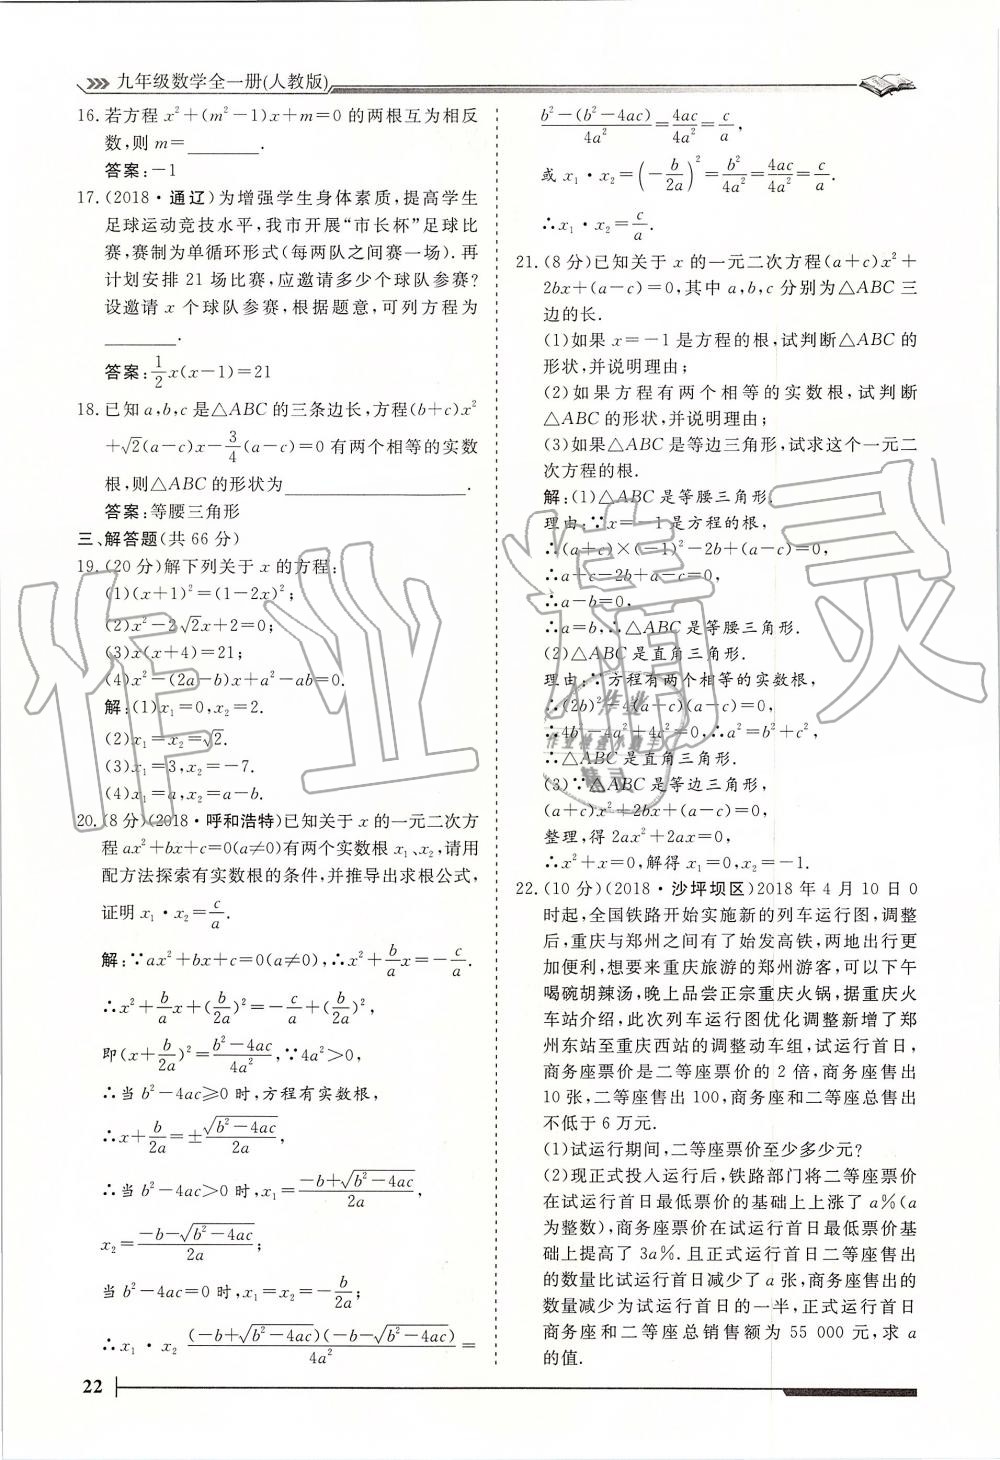 九年级数学全一册(人教版)
16. 若方程 x²+(m²-1)x+m=0 的两根互为相反
数,则 m=________.
答案:-1
17. (2018·通辽)为增强学生身体素质,提高学生
足球运动竞技水平,我市开展“市长杯”足球比
赛,赛制为单循环形式(每两队之间赛一场).再
计划安排 21 场比赛,应邀请多少个球队参赛?
设邀请 x 个球队参赛,根据题意,可列方程为
________.
答案:1/2 x(x-1)=21
18. 已知 a,b,c 是△ABC 的三条边长,方程(b+c)x²
+√2(a-c)x-3/4(a-c)=0 有两个相等的实数
根,则△ABC 的形状为________________.
答案:等腰三角形
三、解答题(共 66 分)
19. (20 分)解下列关于 x 的方程:
(1)(x+1)²=(1-2x)²;
(2)x²-2√2x+2=0;
(3)x(x+4)=21;
(4)x²-(2a-b)x+a²-ab=0.
解:(1)x₁=0,x₂=2.
(2)x₁=x₂=√2.
(3)x₁=3,x₂=-7.
(4)x₁=a,x₂=a-b.
20. (8 分)(2018·呼和浩特)已知关于 x 的一元二次方
程 ax²+bx+c=0(a≠0)有两个实数根 x₁、x₂,请用
配方法探索有实数根的条件,并推导出求根公式,
证明 x₁·x₂=c/a.
解:∵ax²+bx+c=0(a≠0),∴x²+b/a x=-c/a.
∴x²+b/a x+(b/2a)²=-c/a+(b/2a)²,
即(x+b/2a)²=(b²-4ac)/4a²,∵4a²>0,
∴当 b²-4ac≥0 时,方程有实数根,
∴x+b/2a=±√(b²-4ac)/2a,
∴当 b²-4ac>0 时,x₁=(-b+√(b²-4ac))/2a,
x₂=(-b-√(b²-4ac))/2a;
当 b²-4ac=0 时,x₁=x₂=-b/2a;
∴x₁·x₂ (-b+√(b²-4ac))(-b-√(b²-4ac))/4a²=
(b²-(b²-4ac))/4a²=4ac/4a²=c/a,
或 x₁·x₂=(-b/2a)²=b²/4a²=4ac/4a²=c/a.
∴x₁·x₂=c/a.
21. (8 分)已知关于 x 的一元二次方程(a+c)x²+
2bx+(a-c)=0,其中 a,b,c 分别为△ABC 三
边的长.
(1)如果 x=-1 是方程的根,试判断△ABC 的
形状,并说明理由;
(2)如果方程有两个相等的实数根,试判断
△ABC 的形状,并说明理由;
(3)如果△ABC 是等边三角形,试求这个一元二
次方程的根.
解:(1)△ABC 是等腰三角形.
理由:∵x=-1 是方程的根,
∴(a+c)×(-1)²-2b+(a-c)=0,
∴a+c-2b+a-c=0,
∴a-b=0,
∴a=b,∴△ABC 是等腰三角形.
(2)△ABC 是直角三角形.
理由:∵方程有两个相等的实数根,
∴(2b)²-4(a+c)(a-c)=0,
∴4b²-4a²+4c²=0,∴a²=b²+c²,
∴△ABC 是直角三角形.
(3)∵△ABC 是等边三角形,
(a+c)x²+2bx+(a-c)=0,
整理,得 2ax²+2ax=0,
∴x²+x=0,解得 x₁=0,x₂=-1.
22. (10 分)(2018·沙坪坝区)2018 年 4 月 10 日 0
时起,全国铁路开始实施新的列车运行图,调整
后,重庆与郑州之间有了始发高铁,两地出行更
加便利,想要来重庆旅游的郑州游客,可以下午
喝碗胡辣汤,晚上品尝正宗重庆火锅,据重庆火
车站介绍,此次列车运行图优化调整新增了郑
州东站至重庆西站的调整动车组,试运行首日,
商务座票价是二等座票价的 2 倍,商务座售出
10 张,二等座售出 100,商务座和二等座总售出
不低于 6 万元.
(1)试运行期间,二等座票价至少多少元?
(2)现正式投入运行后,铁路部门将二等座票价
在试运行首日最低票价的基础上上涨了 a%(a
为整数),商务座票价在试运行首日最低票价基
础上提高了 3a%.且正式运行首日二等座售出
的数量比试运行首日减少了 a 张,商务座售出的
数量减少为试运行首日的一半,正式运行首日
商务座和二等座总销售额为 55 000 元,求 a
的值.
22
作业精灵
作业
作业检查小助手
精灵